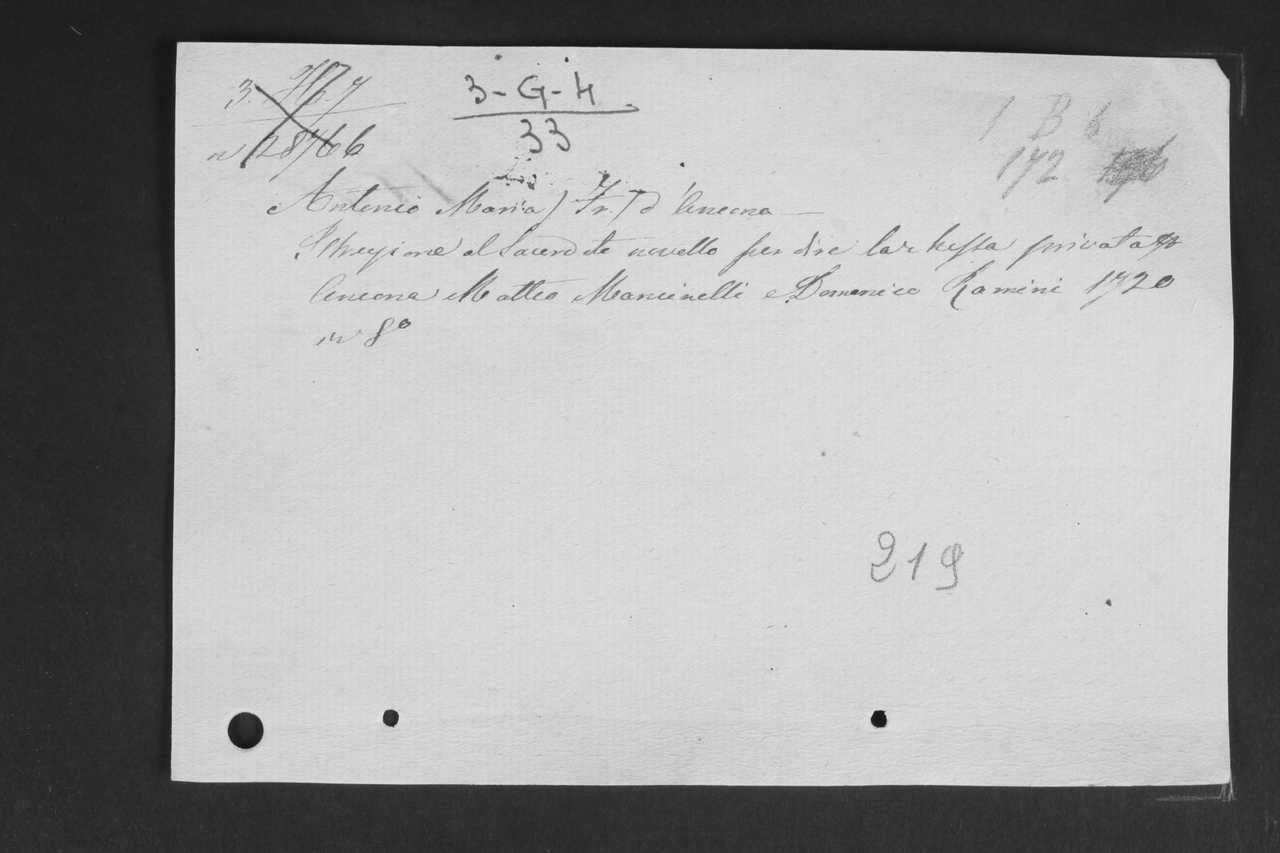 3-G-4
33
1 B 6
172
Antonio Maria) Fr.) d'Ancona —
Istruzione al Sacerdote novello per dire la Messa privata
Ancona Matteo Mancinelli e Domenico Ramini 1720
in 8º
219